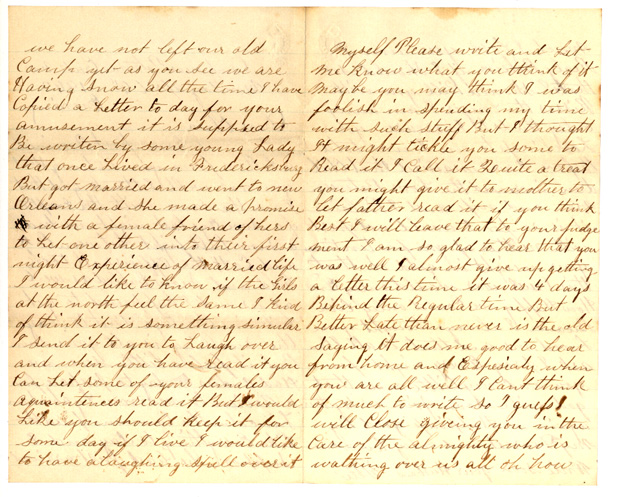 we have not left our old
Camp yet as you see we are
Having Snow all the time I have
Copied a Letter to day for your
amusement it is Suppsed to
Be writen by some young Lady
that once Lived in Fredericksburg
But got married and went to new
Orleans and she made a promise
with a female friend of hers
to Let one other into their first
night Experience of married life
I would like to know if the Girls
at the north feel the same I kind
of think it is something simular
I send it to you to Laugh over
and when you have read it you
Can Let some of your females
aquaintences read it But I would
Like you should keep it for
some day if I live I would like
to have a laughing spell over it
Myself Please write and Let
me know what you think of it
Maybe you may think I was
foolish in spending my time
with such stuff But I thought
It might tickle you some to
Read it I Call it Quite a treat
you might give it to mother to
let father read it if you think
Best I will leave that to your judge
ment I am so glad to hear that you
was well I almost give up getting
a letter this time it was 4 days
Behind the Regular time But
Better Late than never is the old
saying It does me good to hear
from home and Expsialy when
you are all well I Cant think
of much to write so I guess I
will Close gieving you in the
Care of the almighty who is
wathing over us all oh how